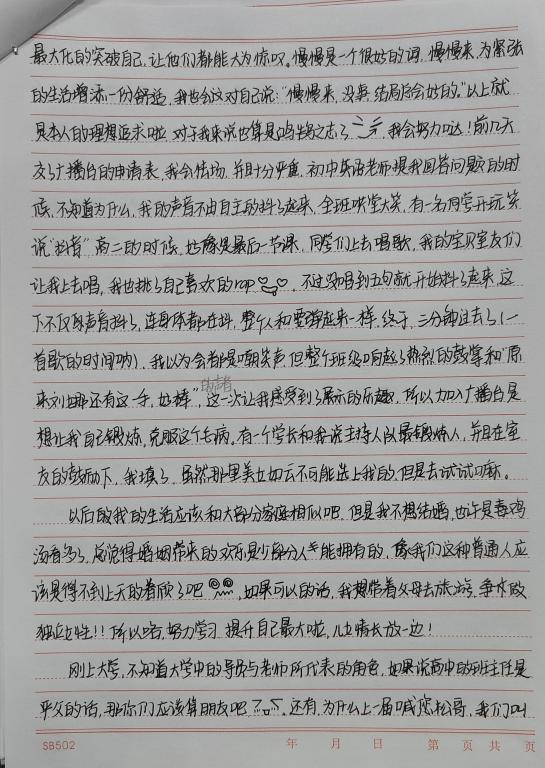 最大化的突破自己，让他们都能大为惊叹。慢慢是一个很好的词，慢慢来，为紧张
的生活增添一份舒适，我也会这对自己说："慢慢来，没事，结局总会好的。"以上就
是本人的理想追求啦，对于我来说也算是鸿鹄之志了，我会努力哒！前几天
交了广播台的申请表，我会怯场，并且十分严重，初中英语老师提我回答问题的时
候，不知道为什么，我的声音不由自主的抖了起来，全班哄堂大笑，有一名同学开玩笑
说"抖音"高二的时候，好像是最后一节课，同学们上去唱歌，我的宝贝室友们
让我上去唱，我也挑了自己喜欢的rap，不过没唱到五句就开始抖了起来，这
下不仅仅声音抖了，连身体都在抖，整个人和要弹起来一样，终于，三分钟过去了（一
首歌的时间哟），我以为会都是嘲笑声，但整个班级响起了热烈的鼓掌和"原
来刘娜还有这一手，好棒"，这一次让我感受到了展示的乐趣，所以加入广播台是
想让我自己锻炼，克服这个毛病。有一个学长和我说主持人队最锻炼人，并且在室
友的鼓励下，我填了，虽然那里美女如云不可能选上我的，但是去试试嘛。
以后的我的生活应该和大部分家庭相似吧，但是我不想结婚，也许是毒鸡
汤看多了，总觉得婚姻带来的欢乐是少部分人才能拥有的，像我们这种普通人应
该是得不到上天的眷顾了吧，如果可以的话，我想带着父母去旅游，争做
独立女性！！所以哈，努力学习 提升自己最大啦，儿女情长放一边！
刚上大学，不知道大学中的导员与老师所代表的角色，如果说高中的班主任是
严父的话，那你们应该算朋友吧，还有，为什么上一届喊您松哥，我们叫
SB502
年 月 日 第 页 共 页